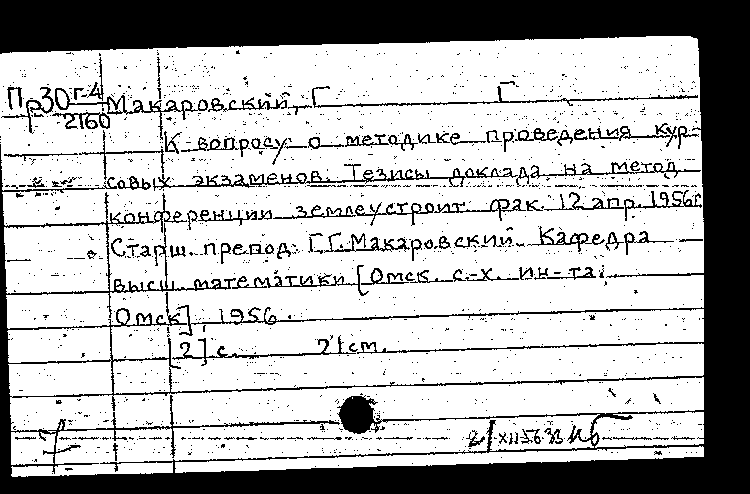 Пр30 Г-4 Макаровский, Г Г
2160
К вопросу о методике проведения кур-
совых экзаменов. Тезисы доклада на метод
конференции землеустроит фак. 12 апр. 1956г
Старш. препод. Г.Г. Макаровский. Кафедра
высш. математики [Омск. с.-х. ин-та.
Омск], 1956.
[2] с. 21 см.